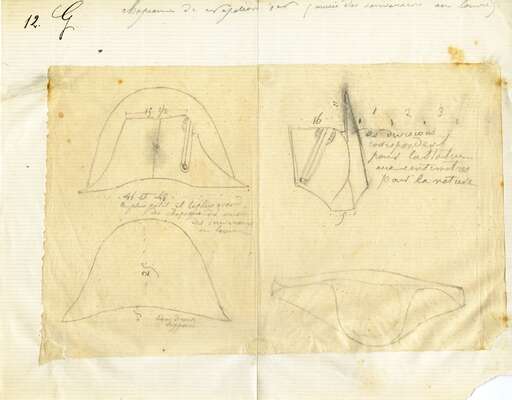 12. G
chapeau de Napoléon 1er (musée des souverains au Louvre)
15 1/2
16
1 2 3
divisions
correspondent
pour la Statue
aux centimètres
pour la nature
46 et 49
le plus petit et le plus grand
des chapeaux du musée
des souverains
au Louvre
2